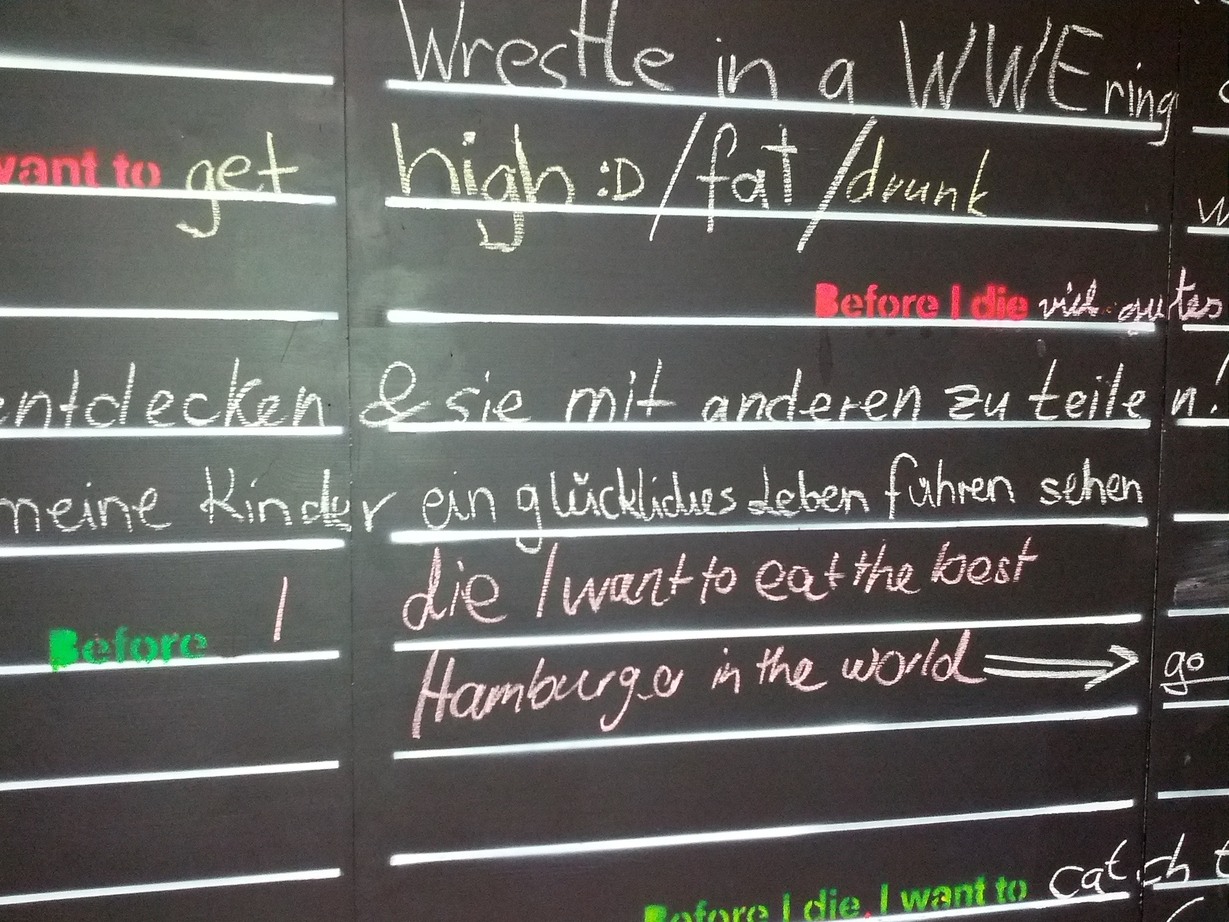 Wrestle in a WWE ring
want to get high :D / fat / drunk
Before I die viel gutes
entdecken & sie mit anderen zu teilen!
meine Kinder ein glückliches Leben führen sehen
Before I die I want to eat the best
Hamburger in the world ⇒ go
Before I die, I want to catch